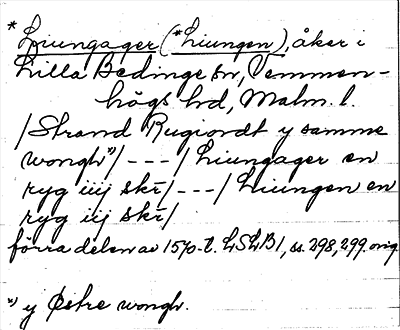 *Liungager (*Liungen), åker i
Lilla Bedinge sn, Vemmen-
högs hd, Malm. l.
/Strand Rugiordt y samme
wongh"/ - - - / Liungager en
ryg iiij skr/ - - - / Liungen en
ryg iij skr/
förra delen av 1570-t. LSLB1, ss. 298, 299. orig
") y Østre wongh.